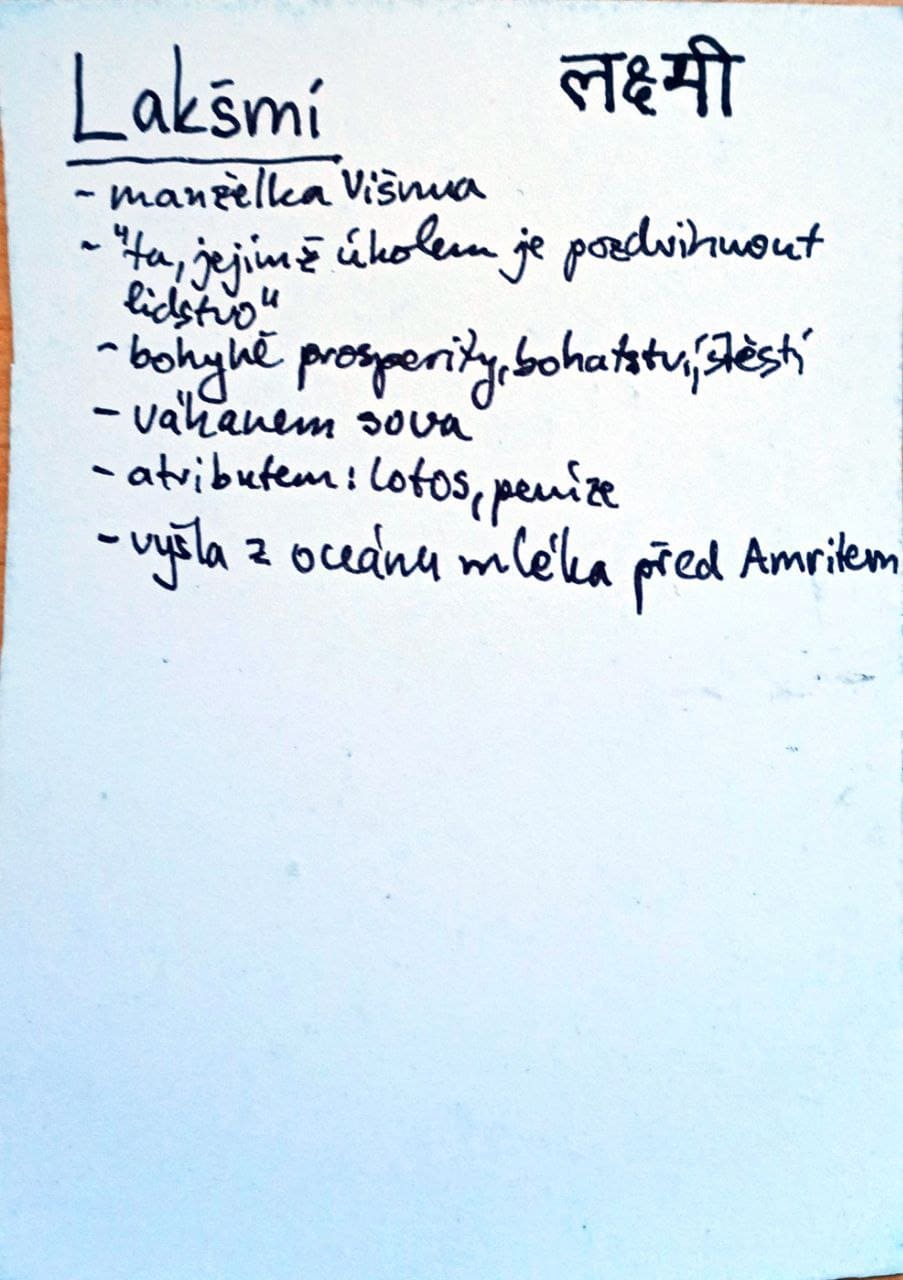 Lakšmí लक्ष्मी
- manželka Višnua
- "ta, jejímž úkolem je pozdvihnout
lidstvo"
- bohyně prosperity, bohatství, štěstí
- váhanem sova
- atributem: lotos, peníze
- vyšla z oceánu mléka před Amritem